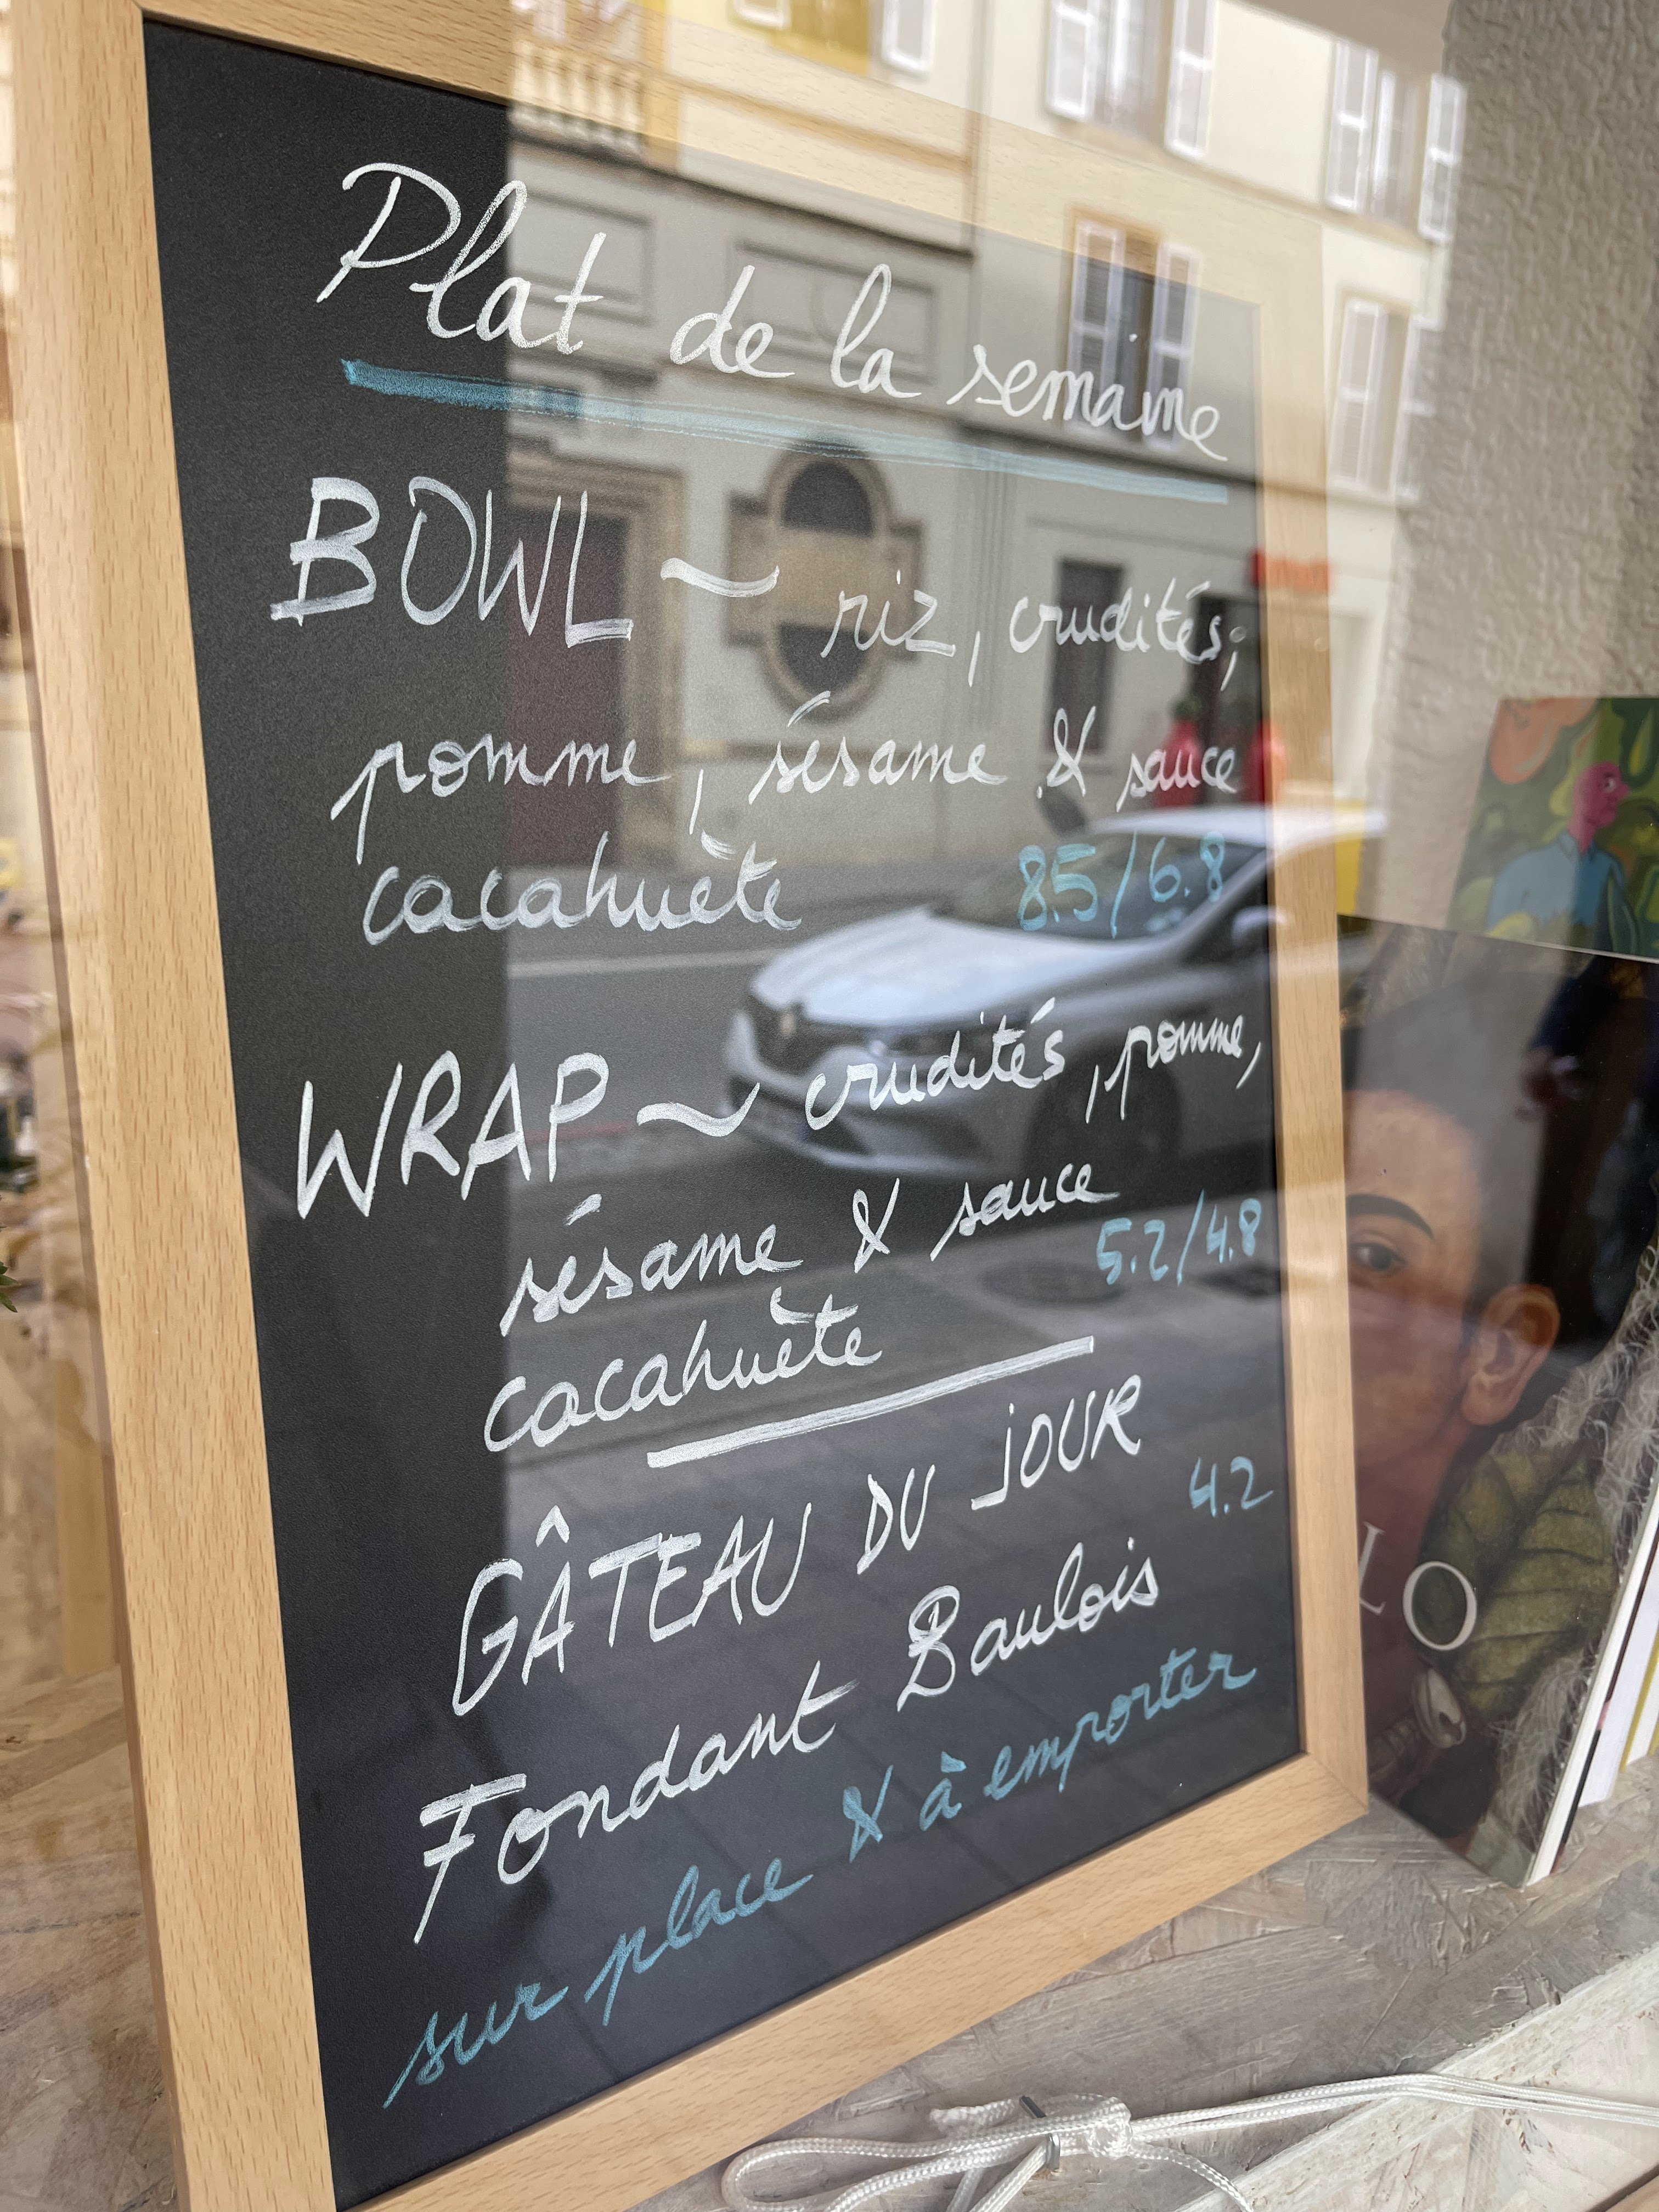 Plat de la semaine
BOWL ~ riz, crudités,
pomme, sésame & sauce
cacahuète 8.5/6.8
WRAP ~ crudités, pomme,
sésame & sauce
5.2/4.8
cacahuète
GÂTEAU DU JOUR
4.2
Fondant Baulois
sur place & à emporter
LO